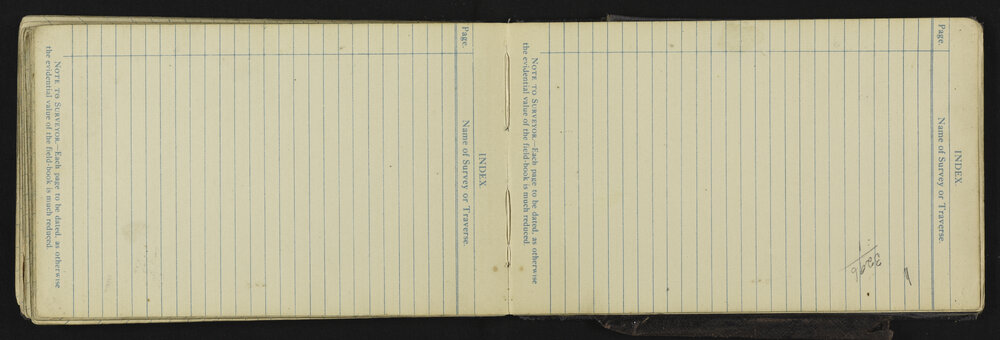 INDEX.
Page. Name of Survey or Traverse.
NOTE TO SURVEYOR.—Each page to be dated, as otherwise
the evidential value of the field-book is much reduced.
INDEX.
Page. Name of Survey or Traverse.
3296
NOTE TO SURVEYOR.—Each page to be dated, as otherwise
the evidential value of the field-book is much reduced.